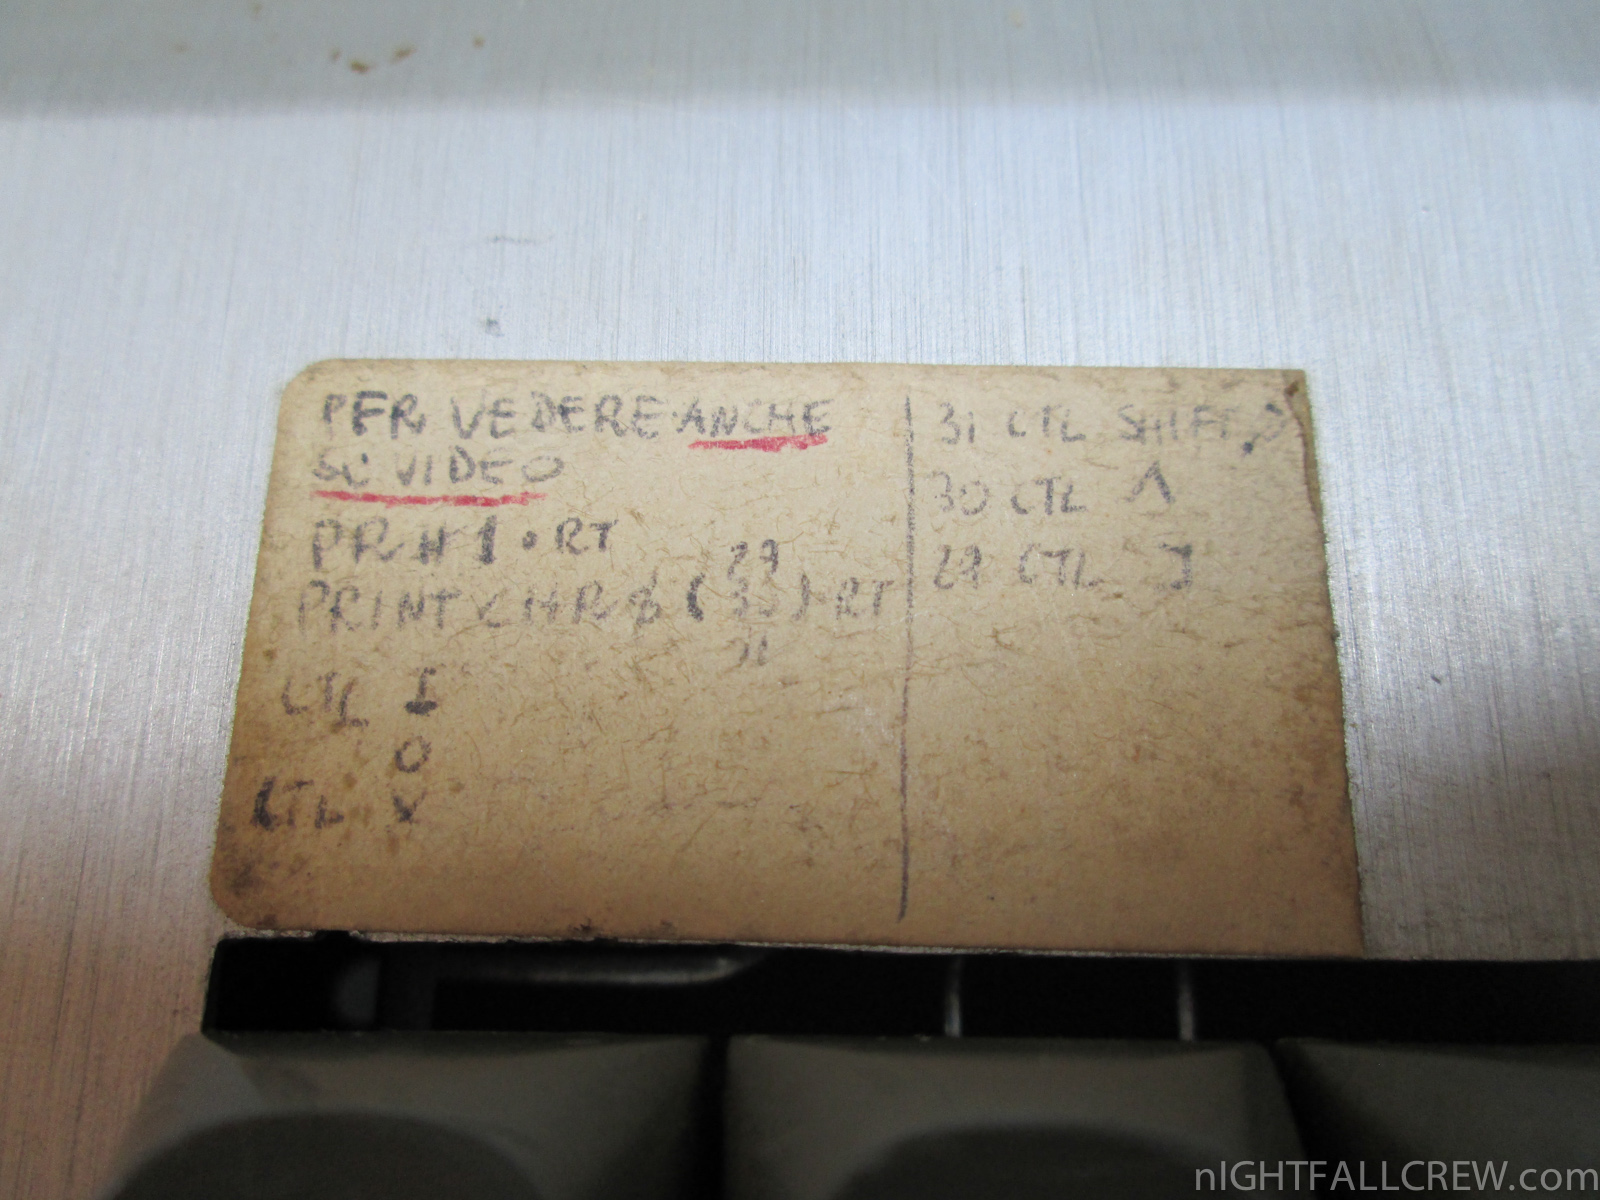 PER VEDERE ANCHE
SU VIDEO
PR # 1 • RT
29
PRINT CHR$ (30) RT
31
CTL I
O
CTL X
31 CTL SHIFT
30 CTL ^
29 CTL
nIGHTFALLCREW.com